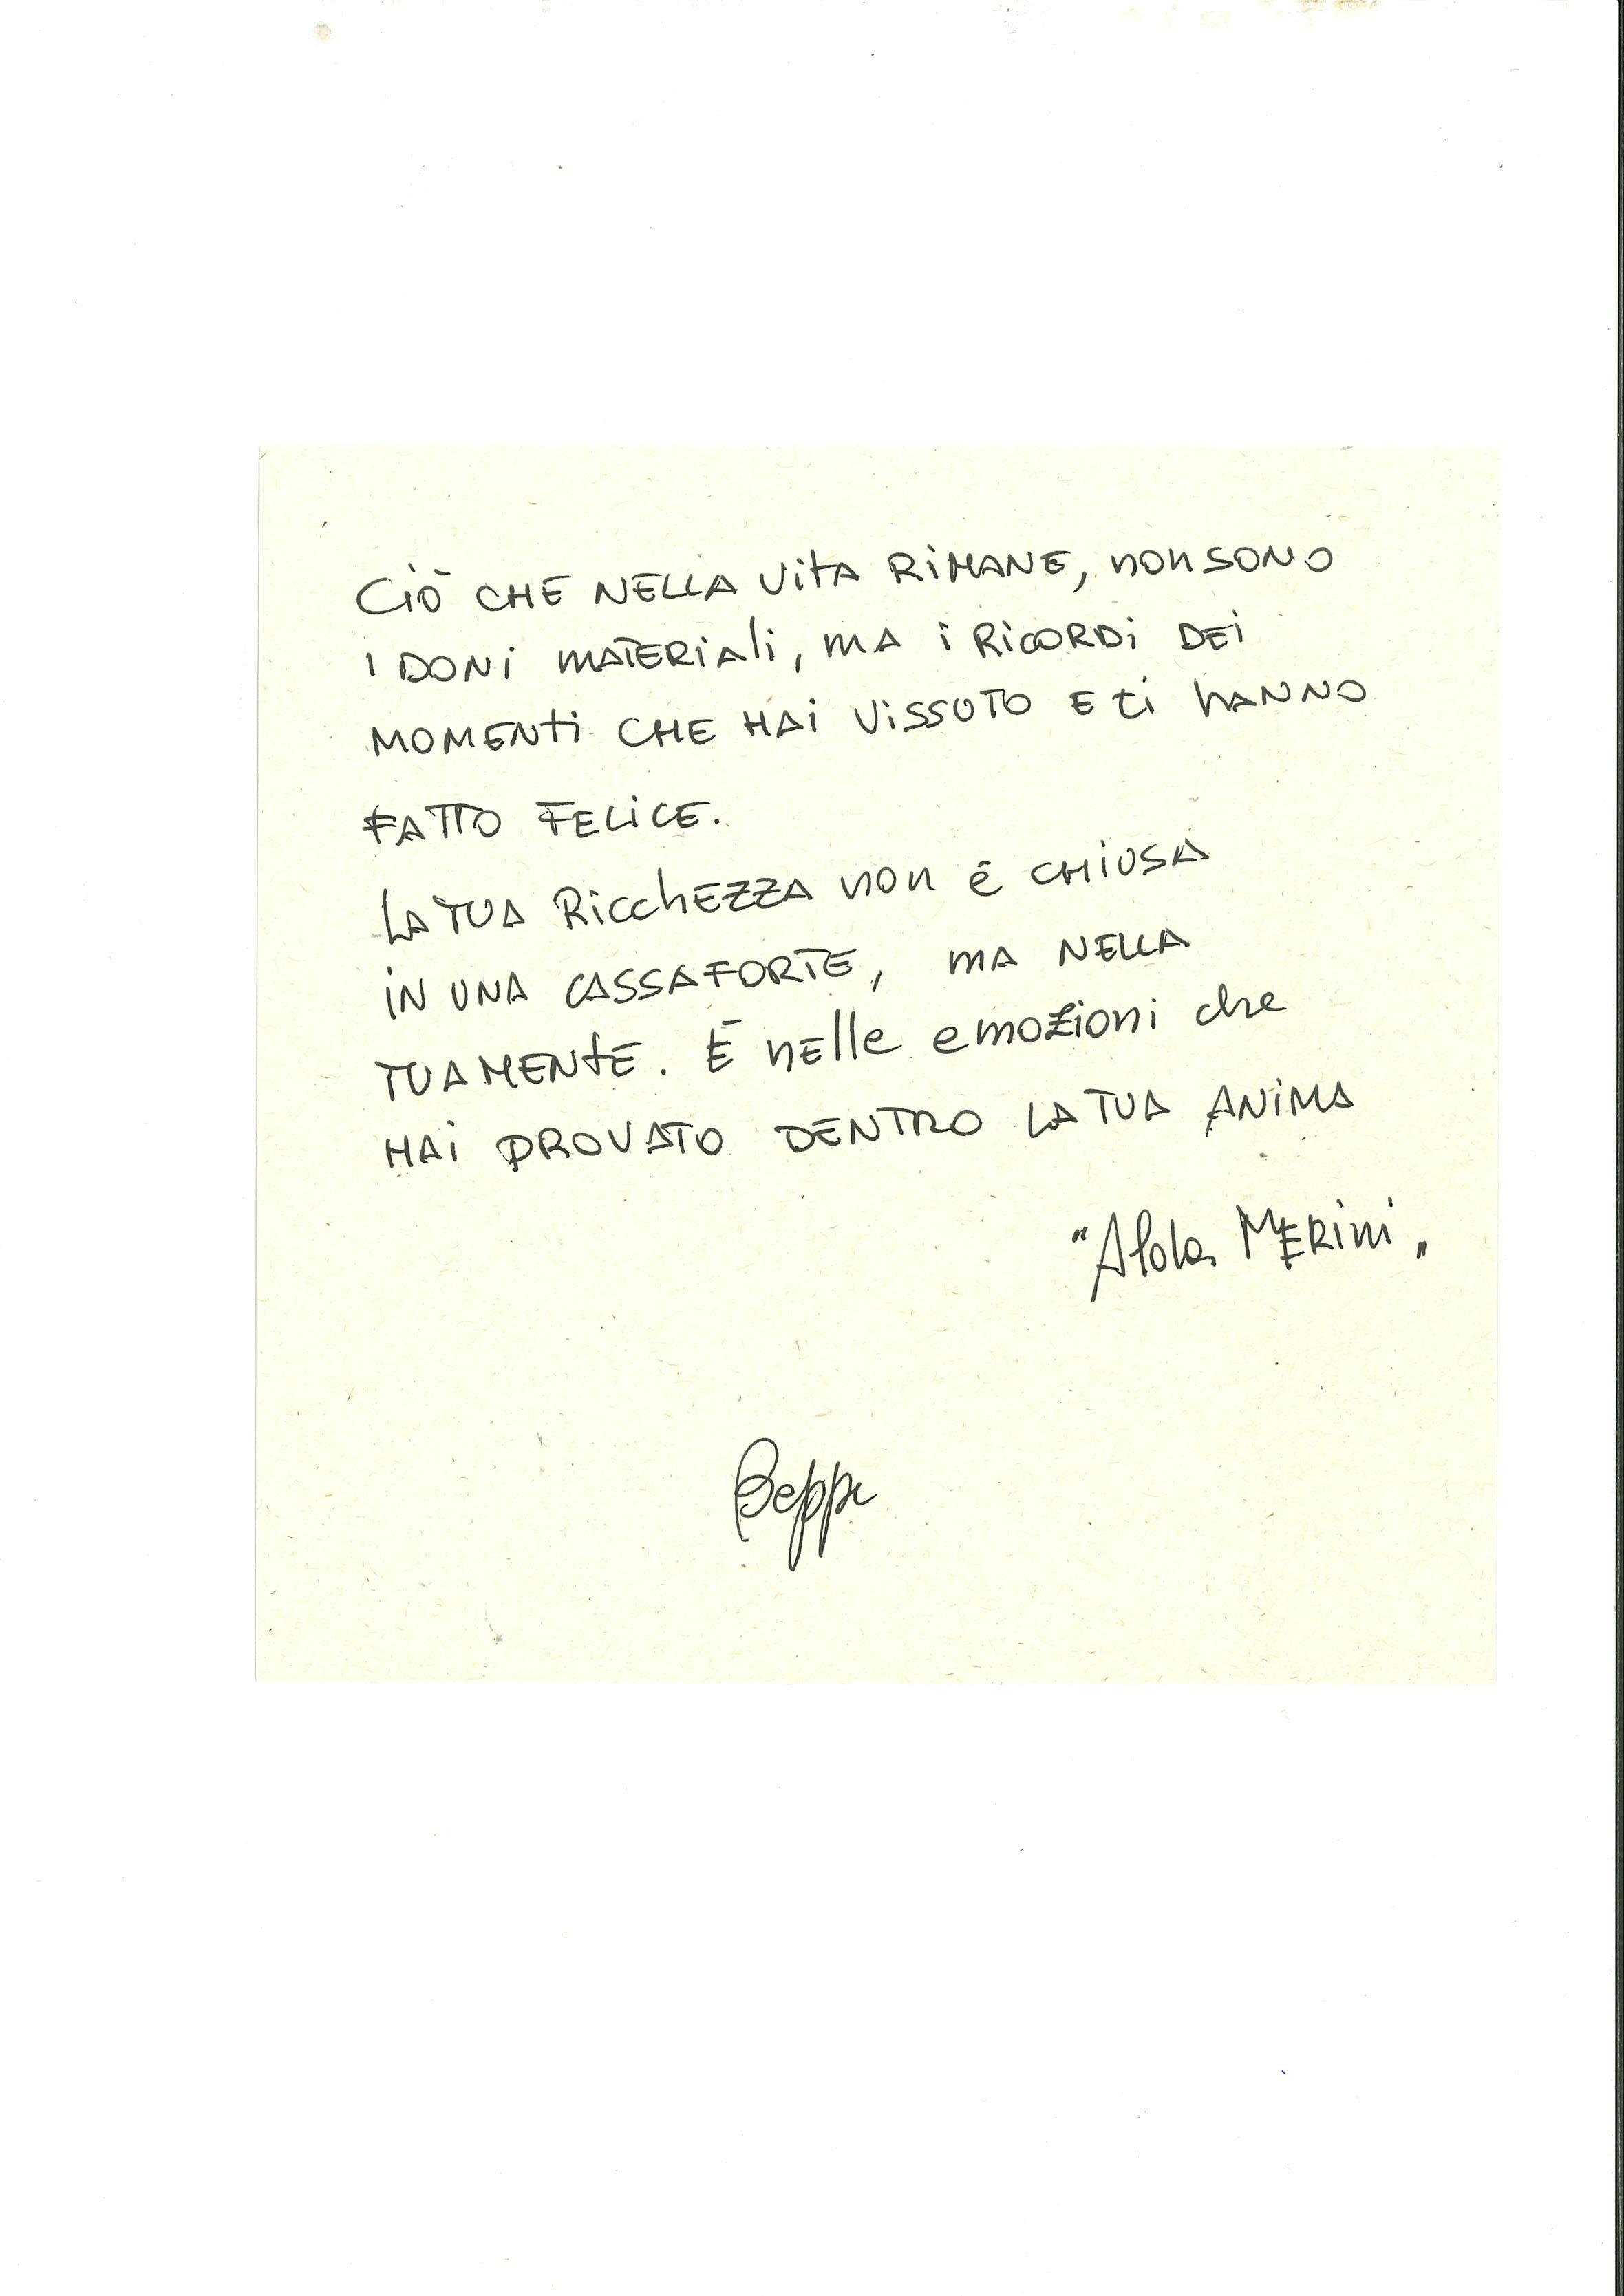 Ciò CHE NELLA VitA RiMANE, nonSONO
I DONi mATERiAli, mA i RiCORDi DEi
MOMENti CHE HAi ViSSUTO E ti hANNO
FATTO FELiCE.
LA TUA RiCChEZZA non é CHiUSA
iN UNA CASSAFORTE, mA NELLA
TUAMENtE. É nElle emozioni che
HAi PROVATO DENTRO LA TUA ANiMA
"Alda MERini"
Beppe